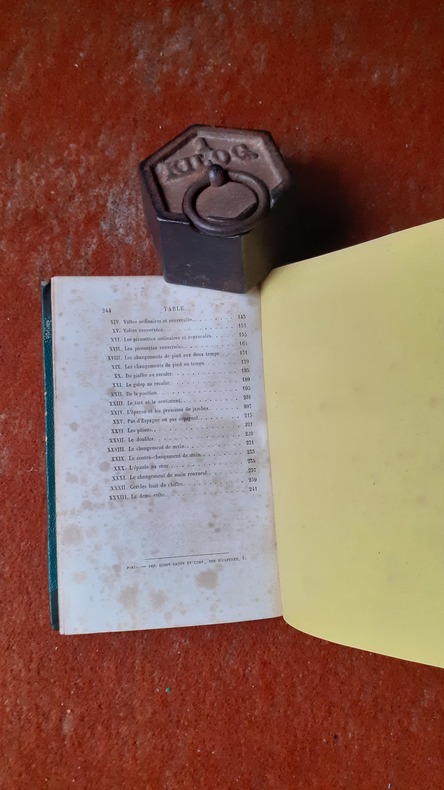 1
KILOG.
244 TABLE
XIV. Voltes ordinaires et renversées. 145
XV. Voltes renversées. 151
XVI. Les pirouettes ordinaires et renversées. 155
XVII. Les pirouettes renversées. 161
XVIII. Les changements de pied aux deux temps 171
XIX. Les changements de pied au temps. 179
XX. Du piaffer au reculer. 185
XXI. Le galop au reculer. 189
XXII. De la position. 195
XXIII. Le tact et le sentiment. 201
XXIV. L'éperon et les pressions de jambes. 207
XXV. Pas d'Espagne ou pas espagnol. 215
XXVI. Les pliers. 221
XXVII. Le doubler. 229
XXVIII. Le changement de main. 231
XXIX. Le contre-changement de main. 233
XXX. L'épaule au mur. 235
XXXI. Le changement de main renversé. 237
XXXII. Cercles huit de chiffre. 239
XXXIII. La demi-volte. 241
PARIS. — IMP. SIMON RAÇON ET COMP., RUE D'ERFURTH, 1.